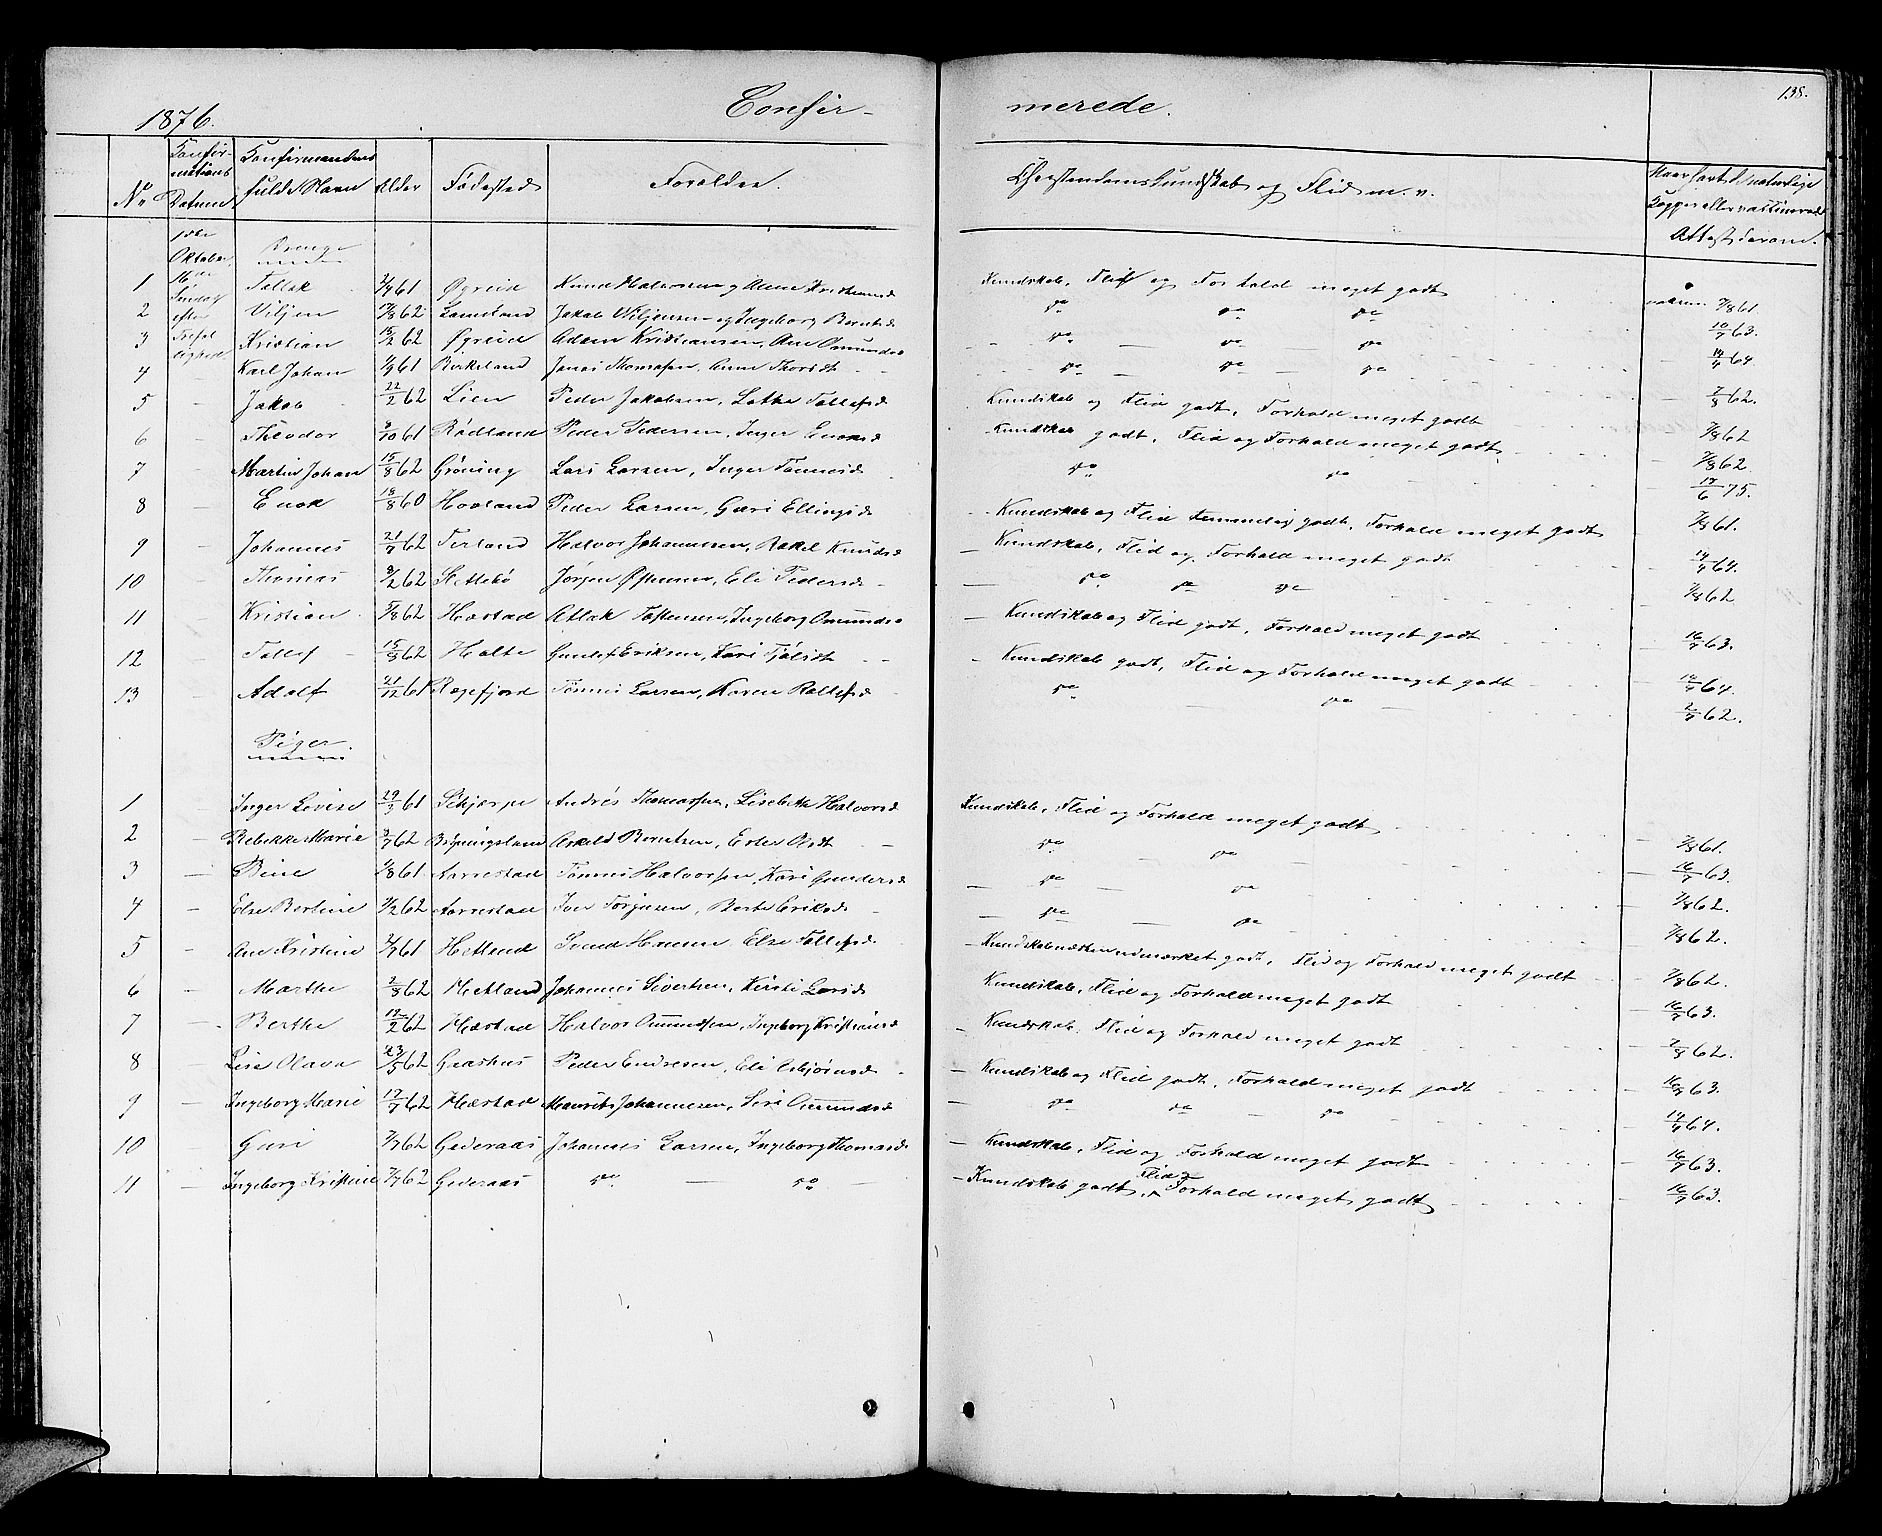 138.
1876. Confir- merede.
No Konfir- mations Datum Konfirmandens fulde Navn Alder Fødested Forældre. Christendomskundskab og Flid m. v. Naar havt de naturlige Kopper eller vaccinerede Attest derom.
1ste Oktober, 16de Søndag efter Trefoldighed
Drenge
1 Tollak 61 Øgreid Knud Halvorsen og Kundskab, Flid og Forhold meget godt vaccin. 7/8 61.
2 Viljen 17/8 62 Lameland Jakob Viljensen og Ingeborg Berntsd do do do 10/9 63.
3 Kristian 15/2 62 Øgreid Adam Kristiansen, Ane Omundsd do do do 64.
4 Karl Johan 1/9 61 Birkeland Jonas Thomasen, Anne Thorsdt do do do 62.
5 Jakob 22/2 62 Lien Peder Jakobsen, Lethe Tollefsd Kundskab og Flid godt, Forhold meget godt 7/8 62
6 Theodor 9/10 61 Rødland Peder Pedersen, Inger Enoksd Kundskab godt, Flid og Forhold meget godt 7/8 62.
7 Martin Johan 15/8 62 Grøning Lars Larsen, Inger Tønnesd do do 17/6 75.
8 Enok 18/8 60 Hovland Peder Larsen, Guri Ellingsd Kundskab og Flid temmelig godt, Forhold meget godt 7/8 61.
9 Johannes 21/7 62 Terland Halvor Johannessen, Rakel Knudsd Kundskab, Flid og Forhold meget godt 64.
10 Thomas 9/2 62 Slettebø Jørgen Østensen, Eli Pedersd do do do 7/8 62
11 Kristian 5/8 62 Hæstad Atlak Tostensen, Ingeborg Omundsd Kundskab og Flid godt, Forhold meget godt 16/9 63.
12 Tollef 15/8 62 Halte Gunlef Eriksen, Kari Kundskab godt, Flid og Forhold meget godt 64.
13 Adolf 21/12 61 Rægefjord Tønnes Larsen, Karen Rollefsd do do 62.
Piger
1 Inger Lovise 29/3 61 Skjerpe Andrés Thomassen, Lisebeth Halvorsd Kundskab, Flid og Forhold meget godt 7/8 61.
2 Rebekke Marie 9/7 62 Askild Berntsen, Ester do do 16/9 63.
3 Bine 1/8 61 Aarrestad Tønnes Halvorsen, Kari Gundersd do do 7/8 62.
4 Else Bertine 7/2 62 Aarrestad Iver Torgersen, Berte Eriksd do do 7/8 62.
5 Ane Kristine 61 Hetland Svend Hansen Else Tollefsd. Kundskab næsten udmærket godt, Flid og Forhold meget godt 7/8 62.
6 Marthe 2/8 62 Hetland Johannes Sivertsen, Kirsti Larsd Kundskab, Flid og Forhold meget godt 16/9 63.
7 Berthe 19/2 62 Hæstad Halvor Omundsen, Ingeborg Kristiansd Kundskab, Flid og Forhold meget godt 7/8 62.
8 Lise Olava 23/5 62 Graahus Peder Endresen, Eli Asbjørnsd Kundskab og Flid godt, Forhold meget godt 16/9 63.
9 Ingeborg Marie 17/7 62 Hæstad Maurits Johannesen, Siri Omundsd do do do 64.
10 Guri 7/7 62 Gaderaas Johannes Larsen, Ingeborg Thomasd Kundskab, Flid og Forhold meget godt 16/9 63.
11 Ingeborg Kristine 7/7 62 Gaderaas do do Kundskab godt, Flid og Forhold meget godt 16/9 63.